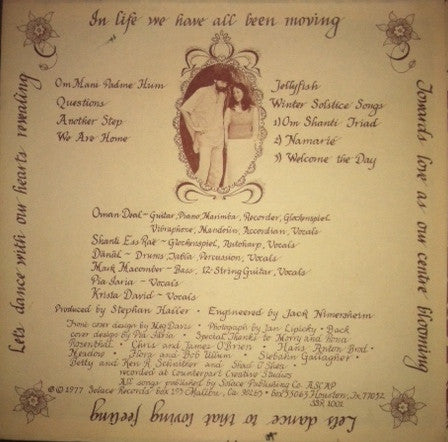 In life we have all been moving
Towards love as our centre blooming
Lets dance to that loving feeling
Lets dance with our hearts revealing
Om Mani Padme Hum
Questions
Another Step
We Are Home
Jellyfish
Winter Solstice Songs
1) Om Shanti Triad
2) Namarié
3) Welcome the Day
Oman Deal ~ Guitar, Piano, Marimba, Recorder, Glockenspiel
Vibraphone, Mandolin, Accordian, Vocals
Shanti Ess Rae ~ Glockenspiel, Autoharp, Vocals
Danäl ~ Drums, Tabla, Percussion, Vocals
Mark Macomber ~ Bass, 12 String Guitar, Vocals
Pia Saria ~ Vocals
Krista David ~ Vocals
Produced by Stephan Haller • Engineered by Jack Nimersheim
Front cover design by Meg Davis • Photograph by Jan Lipicky • Back
cover design by Pia Saria • Special Thanks to Morry and Ilona
Rosenthall • Chris and James O'Brion • Hans, Anton Brod •
Meadow • Flora and Bob Ullum • Siobahn Gallagher •
Betty and Ken R Schnitker and Shad O'Shea •
recorded at Counterpart Creative Studios
All songs published by Solace Publishing Co. ASCAP
© 1977 Solace Records box 193 Malibu, Ca 90265 • box 55065 Houston, Tx 77052
SBR 1001